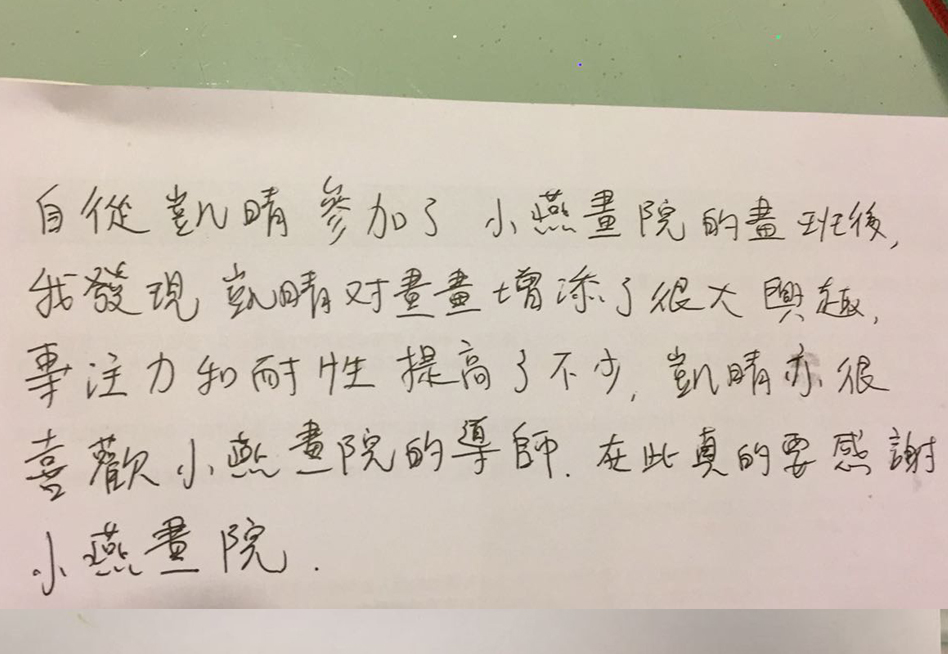 自從凱晴參加了小燕畫院的畫班後,
我發現凱晴对畫畫增添了很大興趣,
專注力和耐性提高了不少,凱晴亦很
喜歡小燕畫院的導師.在此真的要感謝
小燕畫院.